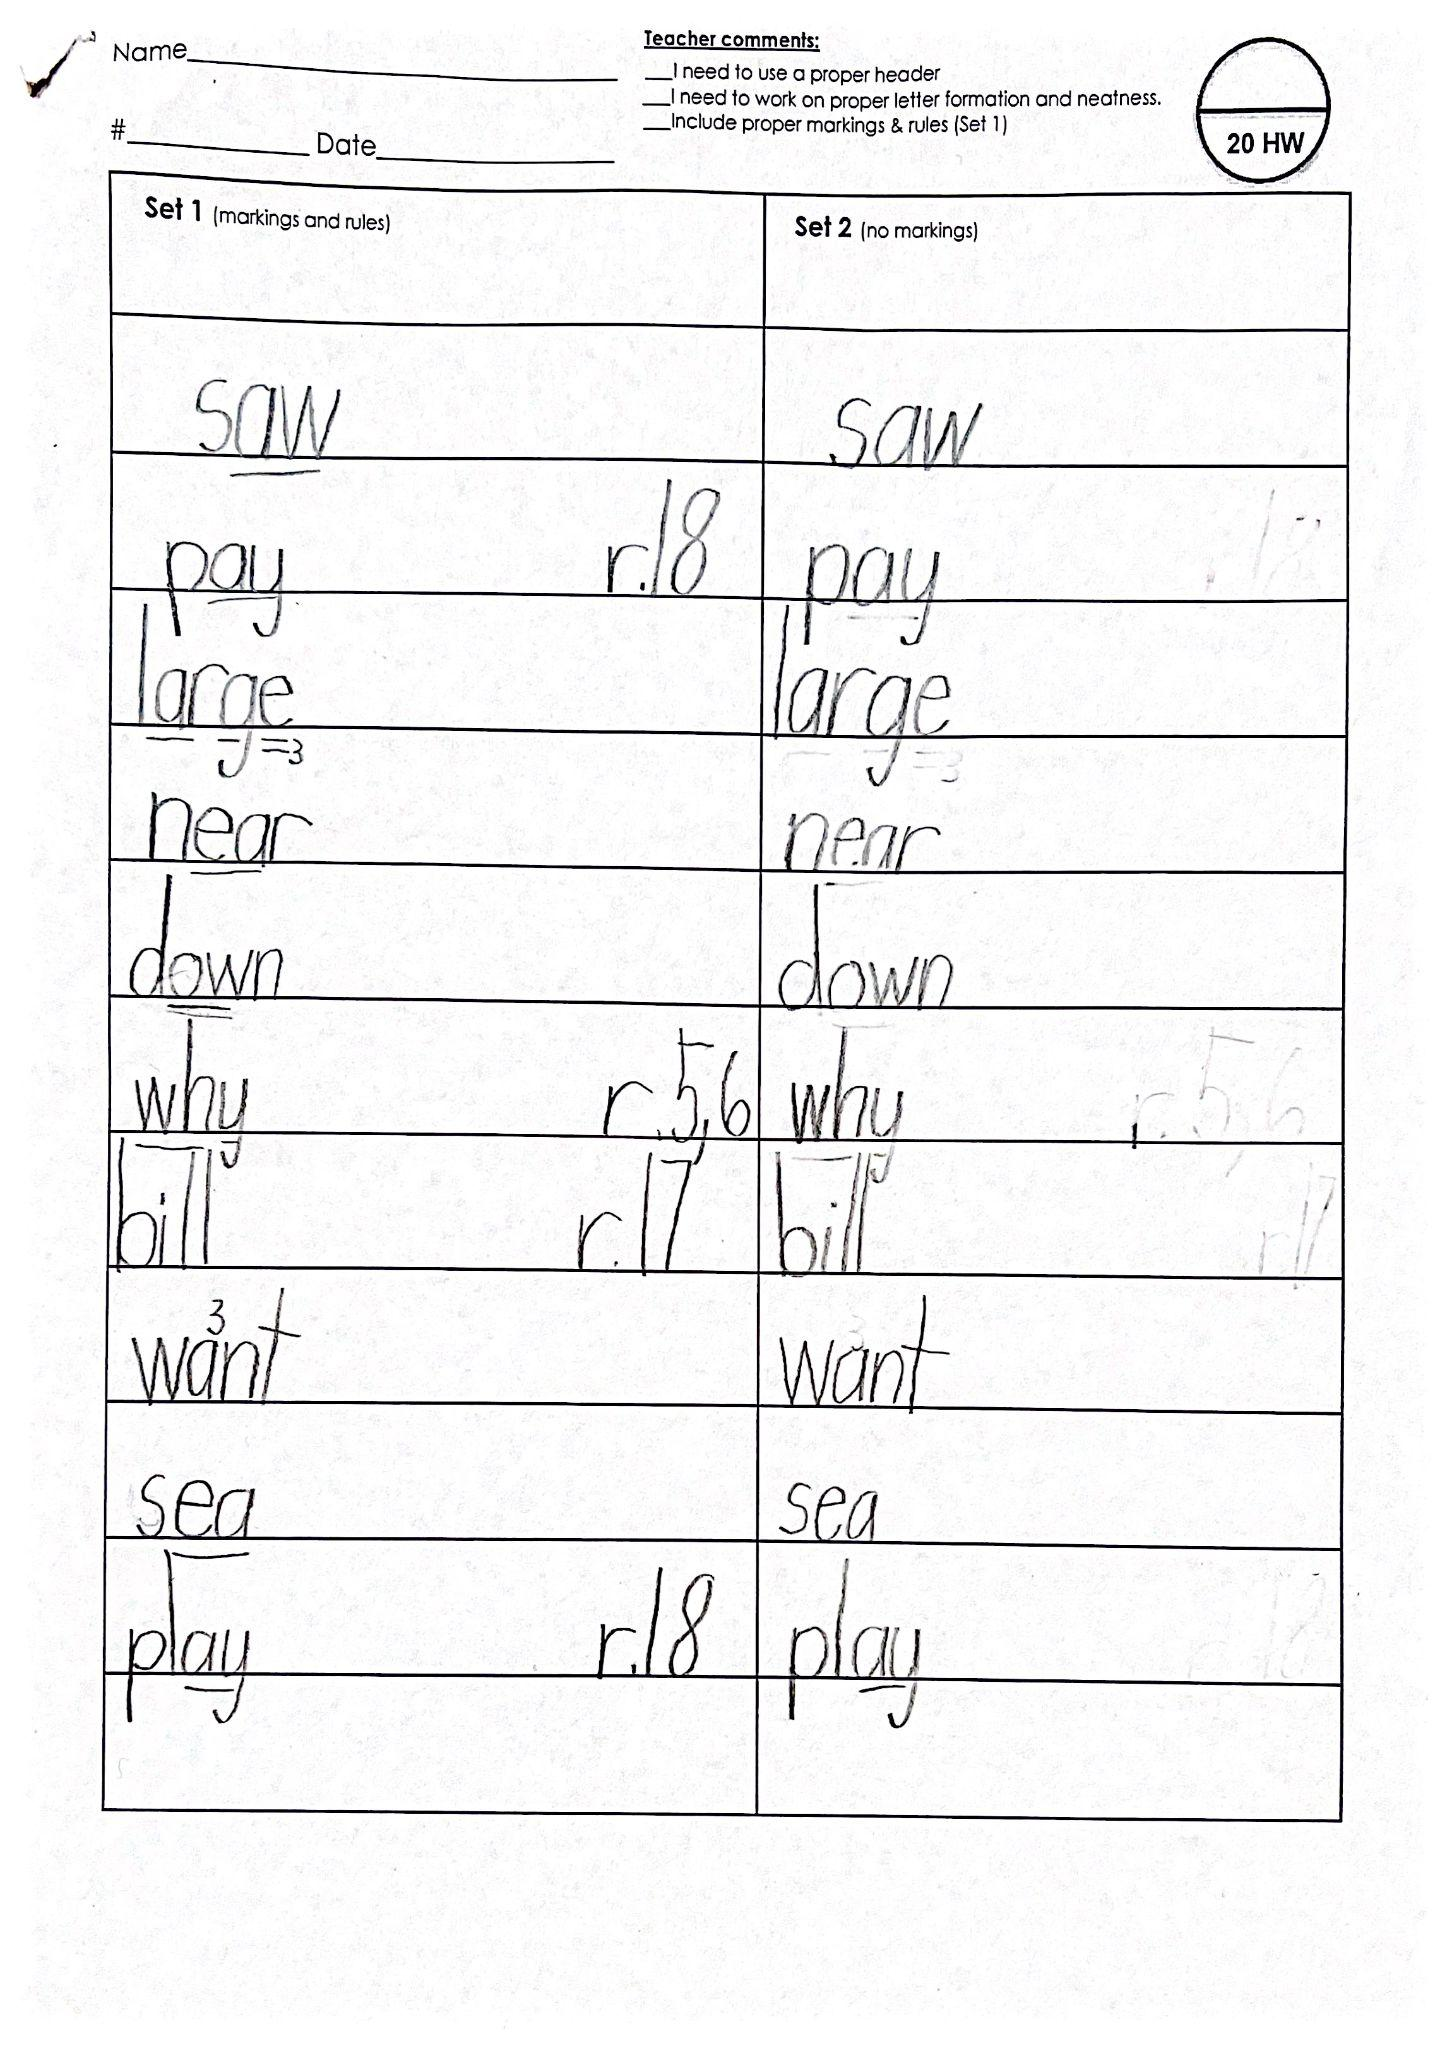 Name
Teacher comments:
__I need to use a proper header
__I need to work on proper letter formation and neatness.
__Include proper markings & rules (Set 1)
20 HW
# Date
Set 1 (markings and rules) Set 2 (no markings)
saw saw
pay r.18 pay 18
large 3 large 3
near near
down down
why r.5,6 why r.5,6
bill r.17 bill r.17
3 3
want want
sea sea
play r.18 play r.18